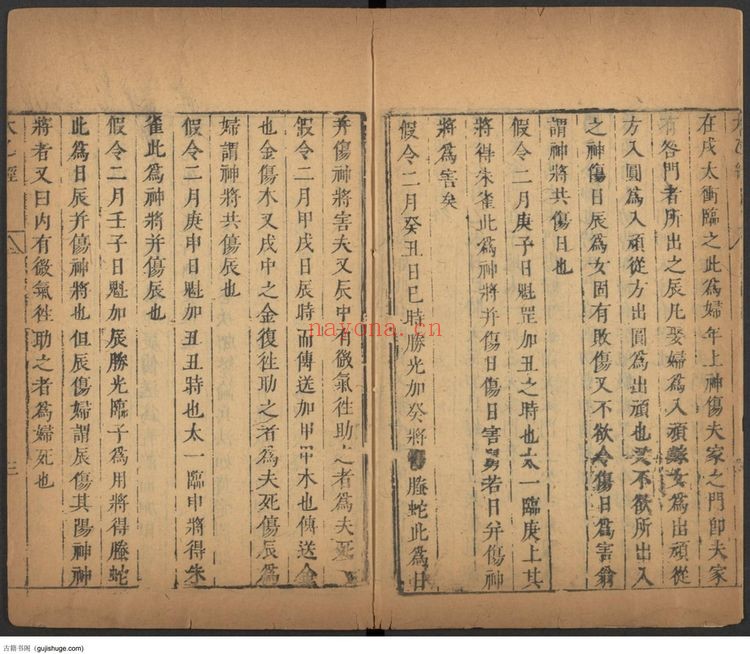 在戌太衝臨之此為婦年上神傷夫家之門即夫家
有咎門者所出之辰凡娶婦為入頑嫁女為出頑從
方入圓為入頑從方出圓為出頑也又不欲所出入
之神傷日辰為女固有敗傷又不欲令傷日為害翁
謂神將共傷日也
假令二月庚子日魁罡加丑之時也太一臨庚上其
將得朱雀此為神將并傷日傷日害舅若日并傷神
將為害矣
假令二月癸丑日巳時勝光加癸將螣蛇此為日
并傷神將害夫又辰中有微氣徃助之者為夫死
假令二月甲戌日辰時而傳送加甲甲木也傳送金
也金傷木又戌中之金復徃助之者為夫死傷辰為
婦謂神將共傷辰也
假令二月庚申日魁加丑丑時也太一臨申將得朱
雀此為神將并傷辰也
假令二月壬子日魁加辰勝光臨子為用將得螣蛇
此為日辰并傷神將也但辰傷婦謂辰傷其陽神神
將者又曰內有微氣徃助之者為婦死也
經
三
nayona.cn
古籍书阁 (gujishuge.com)